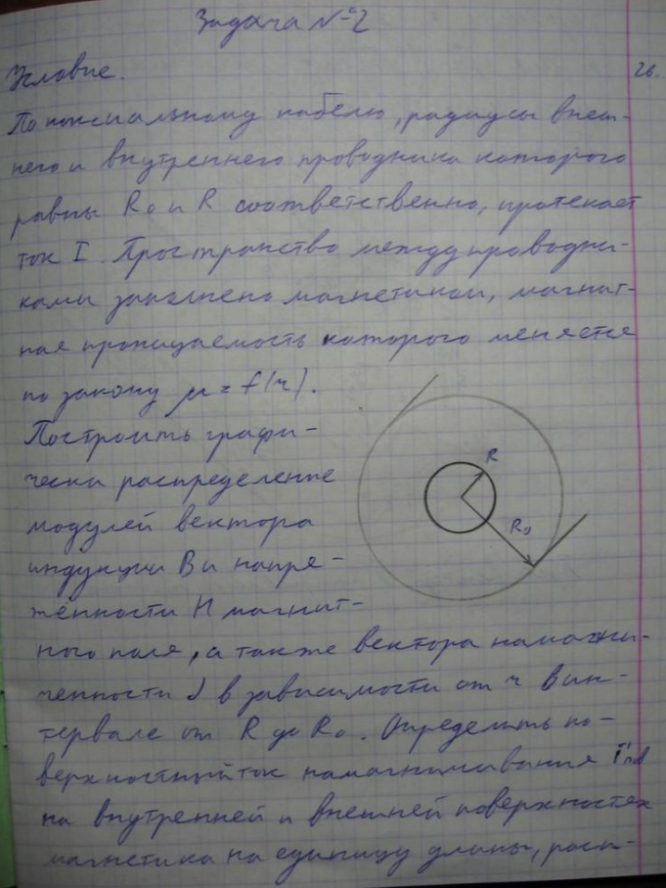 Задача №2
Условие.
26.
По коксиальному кабелю, радиусы внеш-
него и внутреннего проводника которого
равны R₀ и R соответственно, протекает
ток I. Пространство между проводни-
ками заполнено магнетиком, магнит-
ная проницаемость которого меняется
по закону μ = f(r).
Построить графи-
чески распределение
модулей вектора
индукции B и напря-
женности H магнит-
ного поля, а также вектора намагни-
ченности J в зависимости от r в ин-
тервале от R до R₀. Определить по-
верхностный ток намагничивания
на внутренней и внешней поверхностях
магнетика на единицу длины, расп-
R
R₀